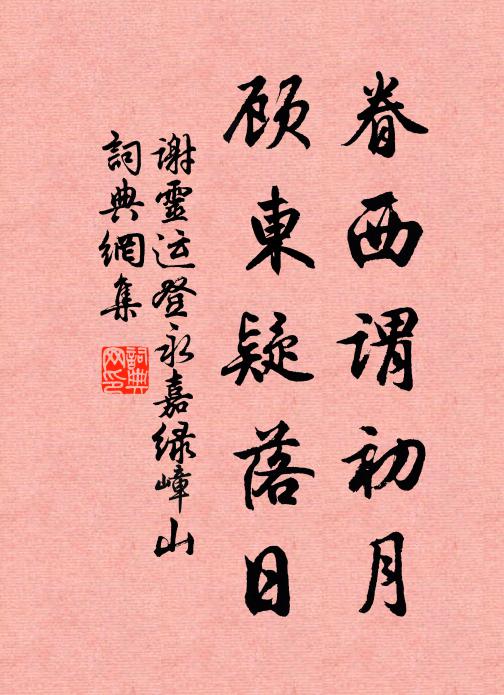 眷西謂初月
顾東疑落日
谢靈运登永嘉绿嶂山
詞典網集
詞典網印